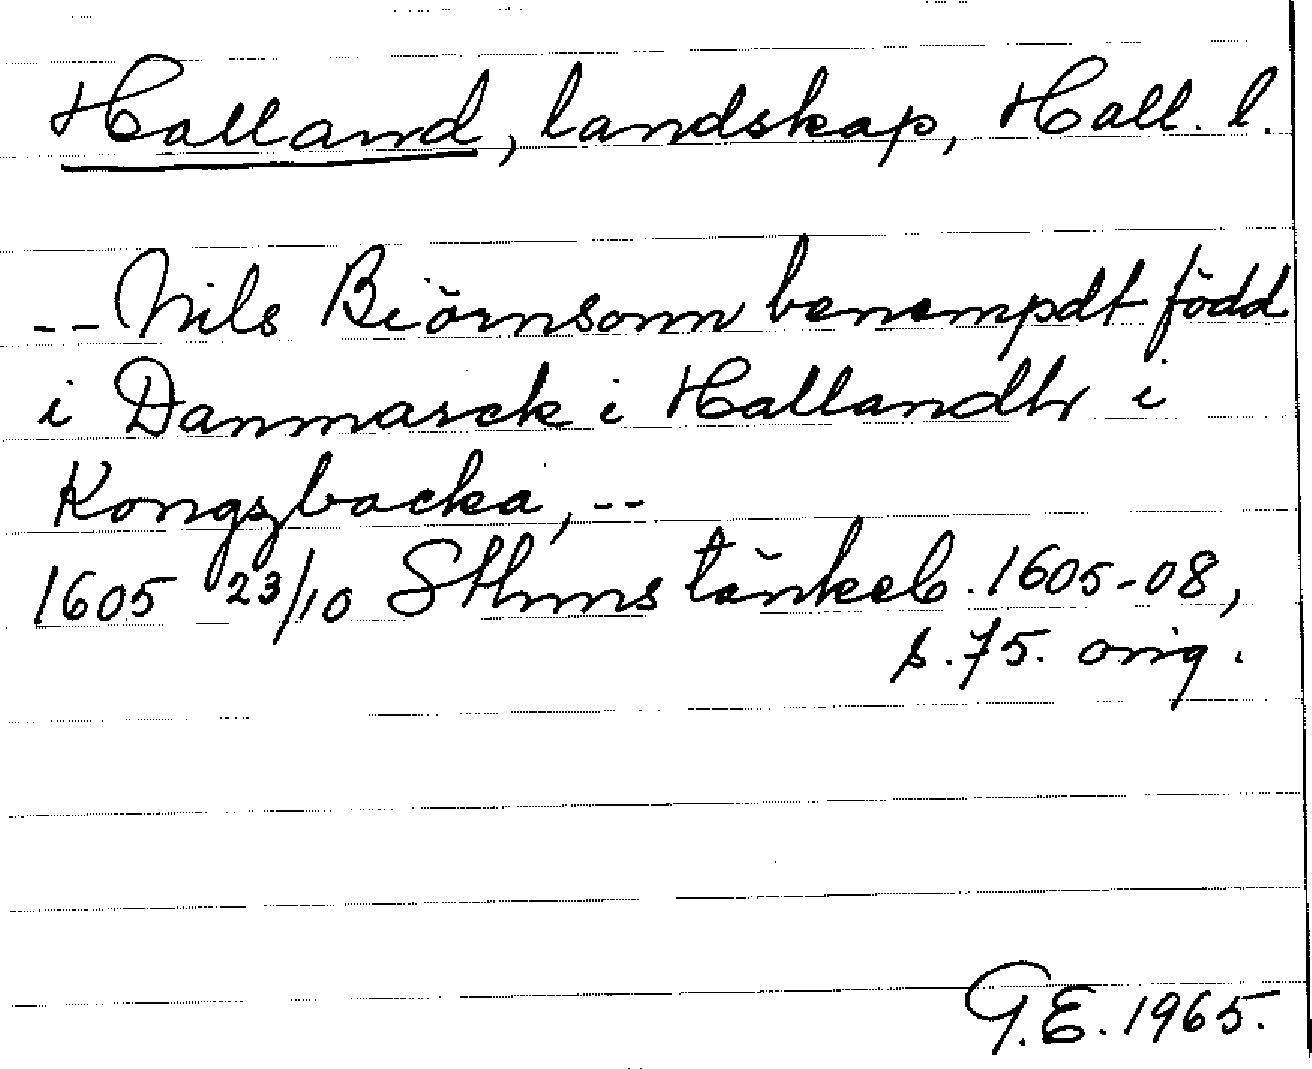 Halland, landskap, Hall. l.
-- Nils Biörnsonn benempdt född
i Danmarck i Hallandh i
Kongzbacka, --
1605 23/10 Sthms tänkeb. 1605-08,
s. 75. orig.
G.E. 1965.